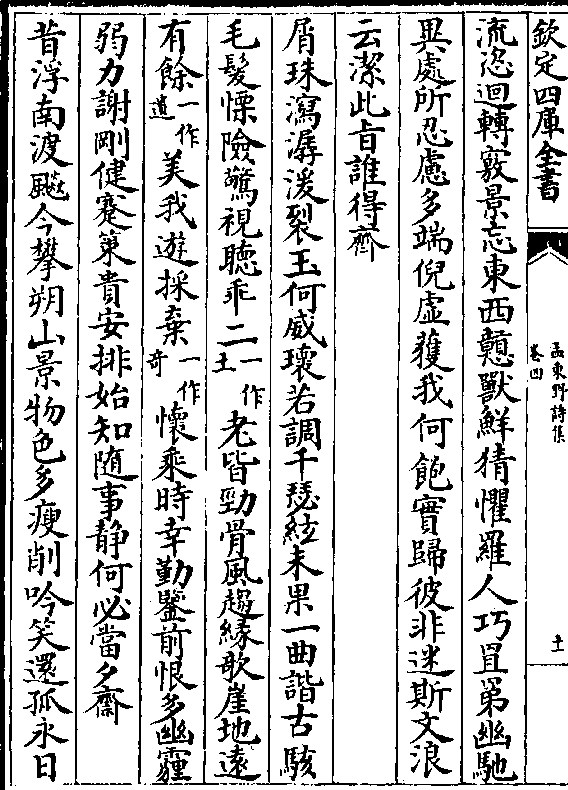 欽定四庫全書
孟東野詩集
卷四
十一
流恣迴轉竅景忘東西戇獸鮮猜懼羅人巧罝罤幽馳
異處所忍慮多端倪虛獲我何飽實歸彼非迷斯文浪
云潔此旨誰得齊
屑珠瀉潺湲裂玉何威瓌若調千瑟絃未果一曲諧古駭
毛髮慄險驚視聽乖二一作土老皆勁骨風趨緣欹崖地遠
有餘一作遺美我遊採棄一作奇懷乘時幸勤鑒前恨多幽霾
弱力謝剛健蹇策貴安排始知隨事靜何必當夕齋
昔浮南渡飈今攀朔山景物色多瘦削吟笑還孤永日